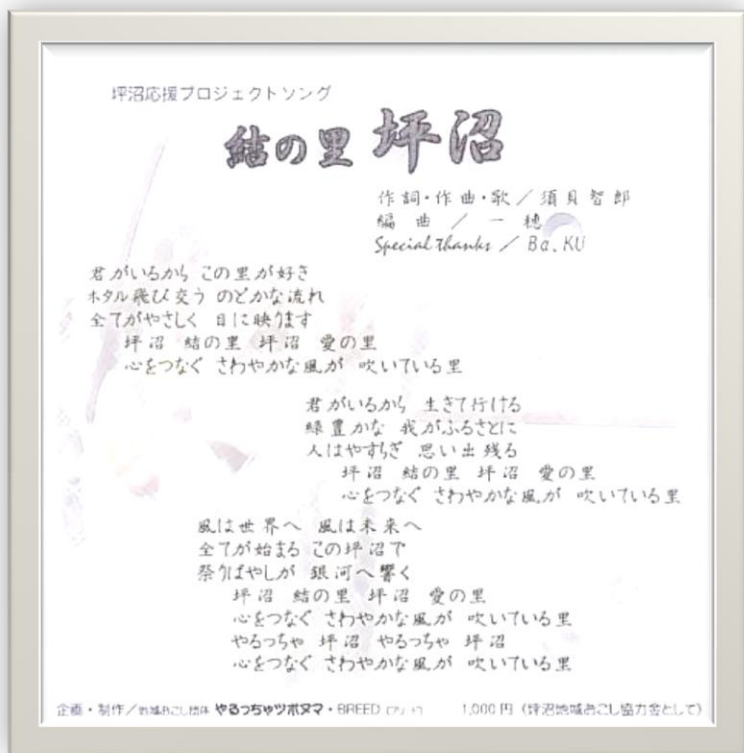 坪沼応援プロジェクトソング
結の里 坪沼
作詞・作曲・歌／須貝智郎
編曲／一穂
Special thanks／Ba.KU
君がいるから この里が好き
ホタル飛び交う のどかな流れ
全てがやさしく 目に映ります
坪沼 結の里 坪沼 愛の里
心をつなぐ さわやかな風が 吹いている里
君がいるから 生きて行ける
緑豊かな 我がふるさとに
人はやすらぎ 思い出残る
坪沼 結の里 坪沼 愛の里
心をつなぐ さわやかな風が 吹いている里
風は世界へ 風は未来へ
全てが始まる この坪沼で
祭りばやしが 銀河へ響く
坪沼 結の里 坪沼 愛の里
心をつなぐ さわやかな風が 吹いている里
やるっちゃ 坪沼 やるっちゃ 坪沼
心をつなぐ さわやかな風が 吹いている里
企画・制作／地域おこし団体 やるっちゃツボヌマ・BREED 1,000円（坪沼地域おこし協力金として）